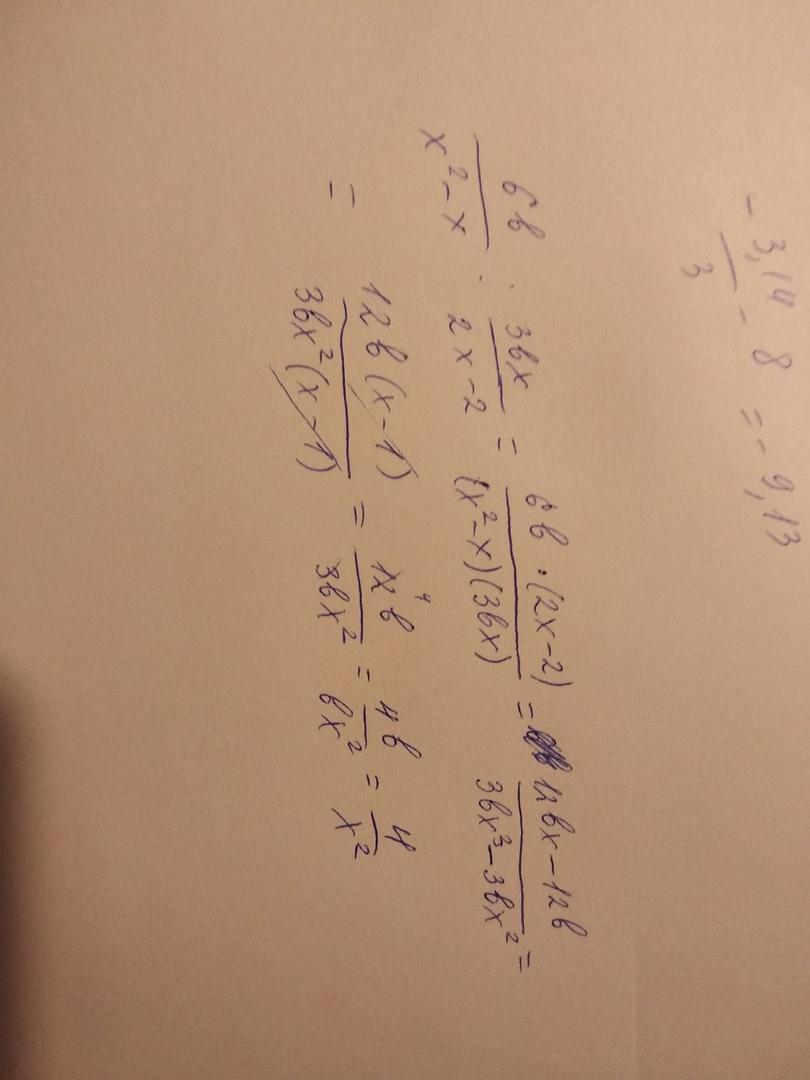 - 3,14/3 - 8 = - 9,13
6b/(x² - x) : 3bx/(2x - 2) = 6b · (2x - 2)/((x² - x)(3bx)) = (12bx - 12b)/(3bx³ - 3bx²) =
= 12b(x - 1)/(3bx²(x - 1)) = 12⁴b/(3bx²) = 4b/(bx²) = 4/x²